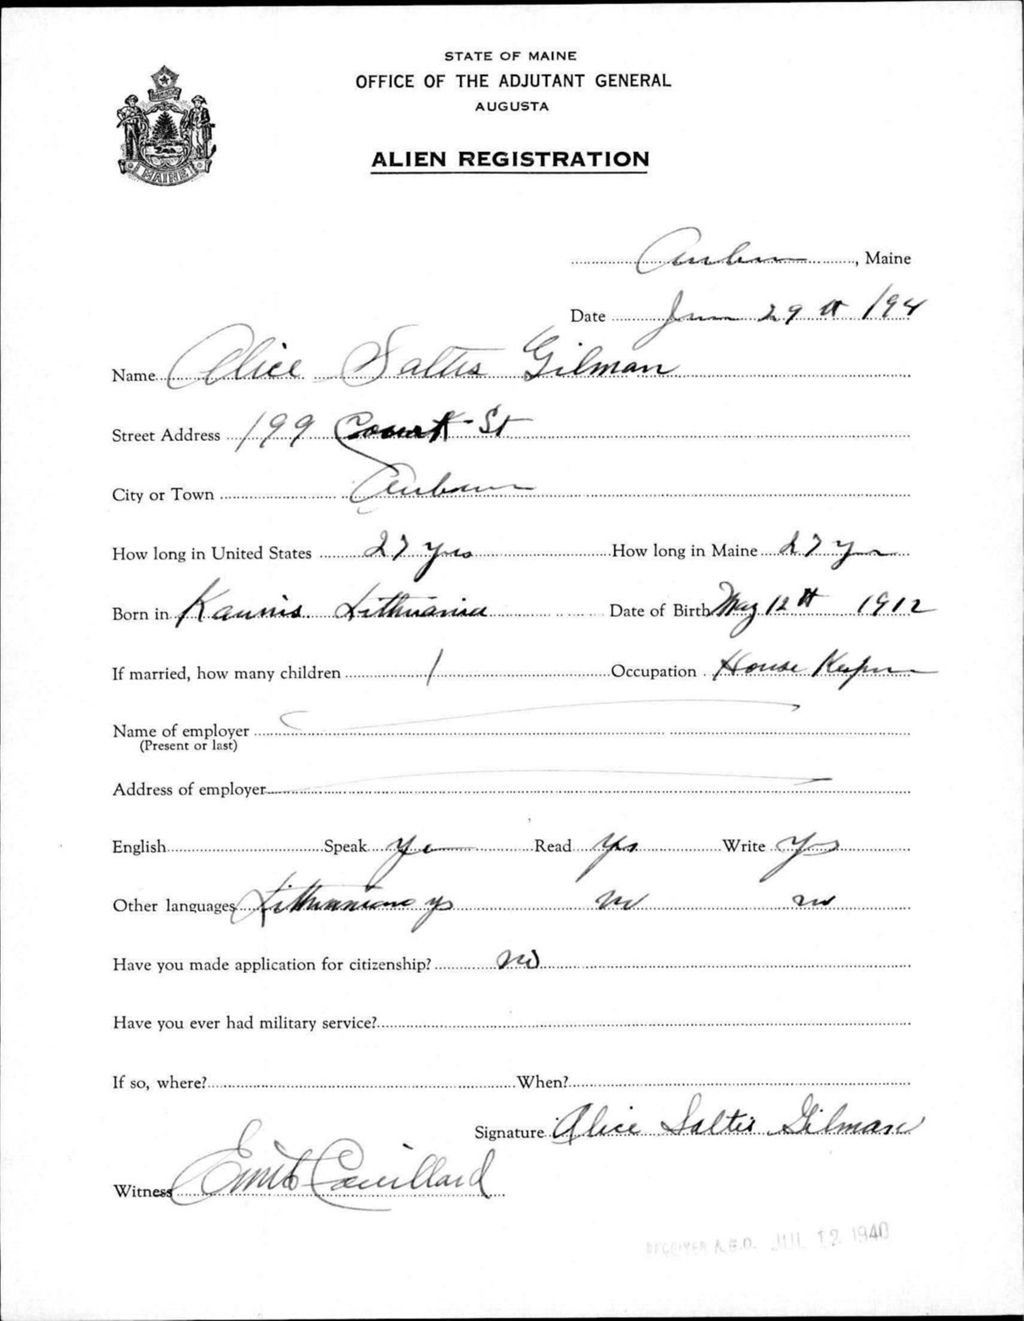 STATE OF MAINE
OFFICE OF THE ADJUTANT GENERAL
AUGUSTA
ALIEN REGISTRATION
MAINE
Auburn, Maine
Date June 29th 194
Name Alice Saltis Gilman
Street Address 199 Court St
City or Town Auburn
How long in United States 27 yrs How long in Maine 27 yr
Born in Kaunis Lithuania Date of Birth May 12th 1912
If married, how many children 1 Occupation House Keeper
Name of employer
(Present or last)
Address of employer
English Speak Yes Read Yes Write Yes
Other languages Lithuanian ys no no
Have you made application for citizenship? no
Have you ever had military service?
If so, where? When?
Signature Alice Saltis Gilman
Witness Couillard
RECEIVED A.G.O. JUL 12 1940